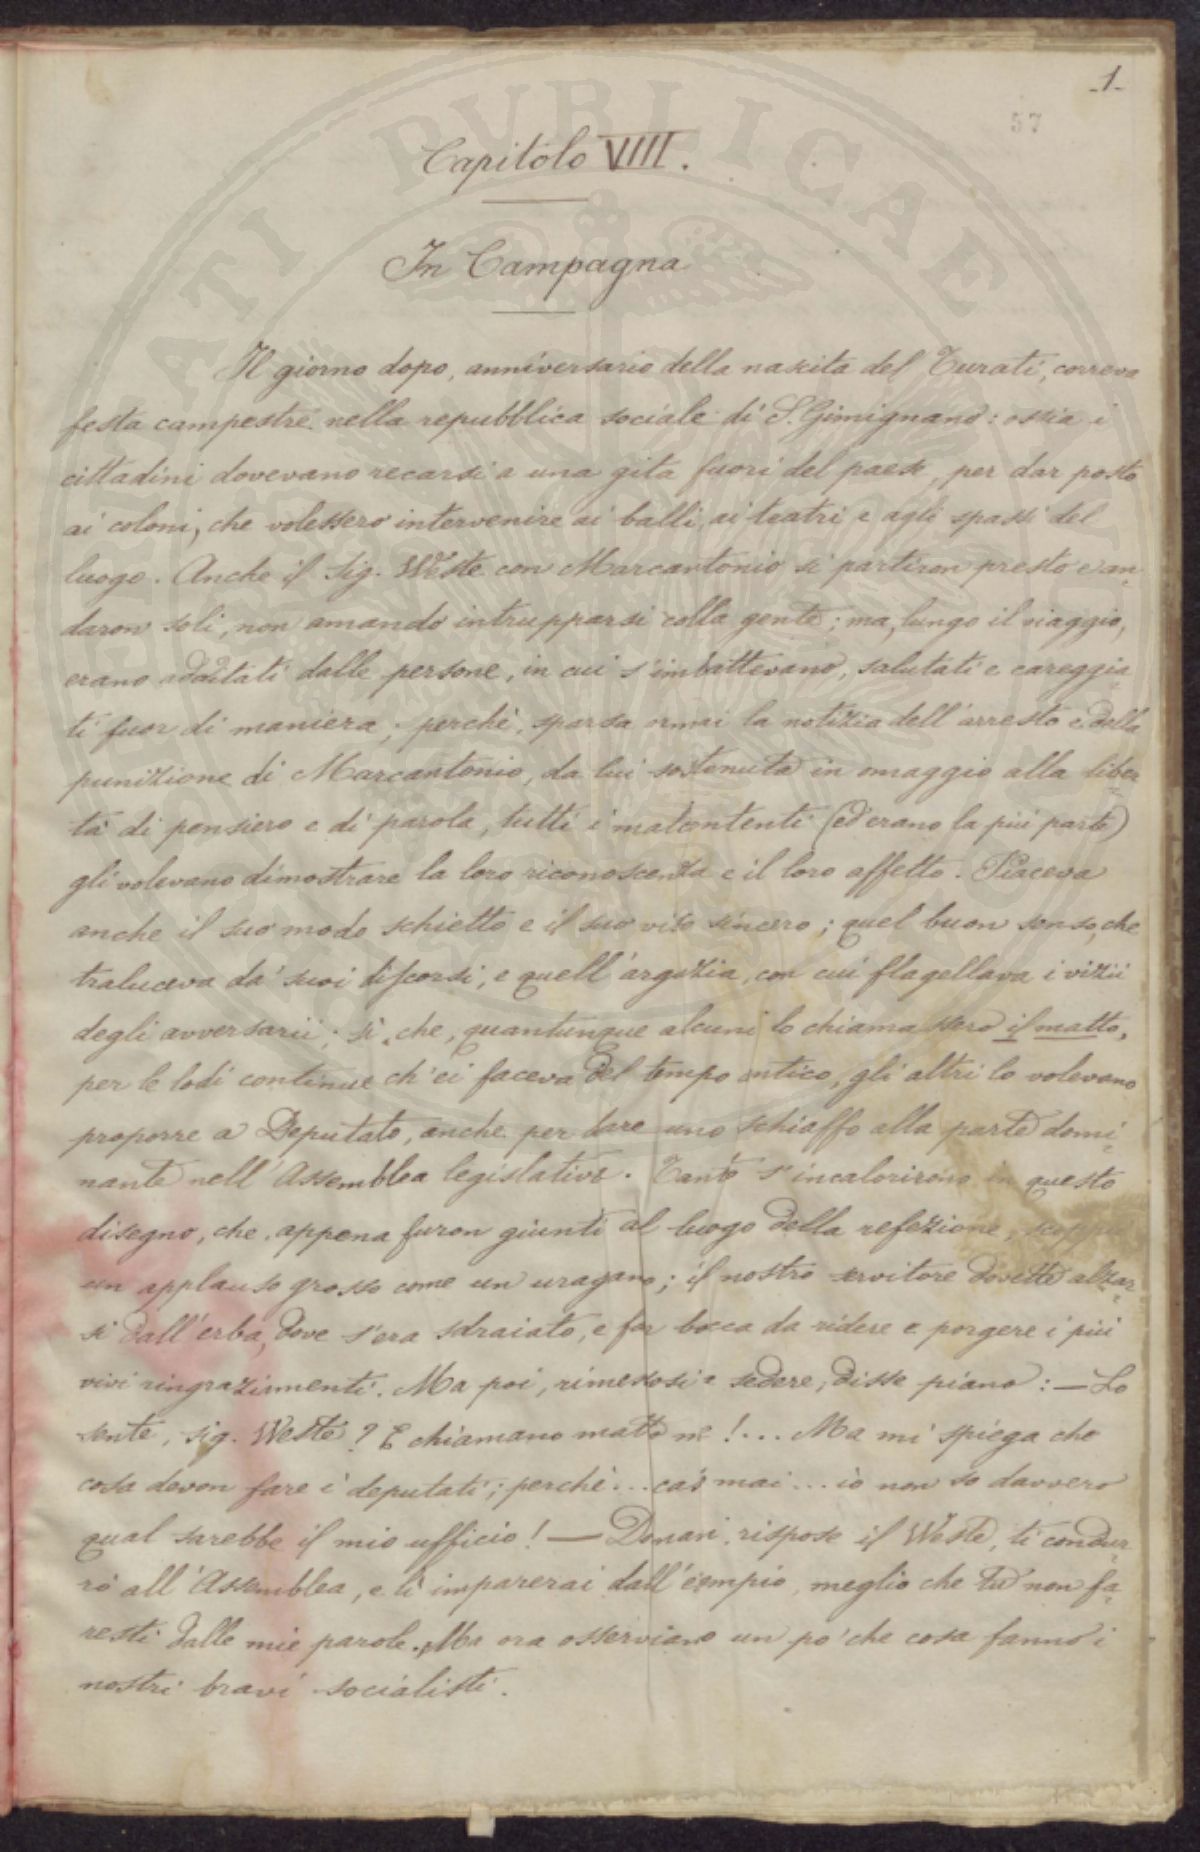 -1-
57
Capitolo VIIII.
In Campagna
Il giorno dopo, anniversario della nascita del Turati, correva
festa campestre nella repubblica sociale di S. Gimignano: ossia i
cittadini dovevano recarsi a una gita fuori del paese, per dar posto
ai coloni, che volessero intervenire ai balli, ai teatri e agli spassi del
luogo. Anche il Sig. Weste con Marcantonio si partiron presto e an-
daron soli, non amando intrupparsi colla gente; ma, lungo il viaggio,
erano additati dalle persone, in cui s'imbattevano, salutati e careggia-
ti fuor di maniera; perchè, sparsa ormai la notizia dell'arresto e della
punizione di Marcantonio, da lui sostenuta in omaggio alla liber-
tà di pensiero e di parola, tutti i malcontenti (ed erano la più parte)
gli volevano dimostrare la loro riconoscenza e il loro affetto. Piaceva
anche il suo modo schietto e il suo viso sincero; quel buon senso, che
traluceva da' suoi discorsi, e quell'arguzia, con cui flagellava i vizii
degli avversarii; sì che, quantunque alcuni lo chiamassero il matto,
per le lodi continue ch'ei faceva del tempo antico, gli altri lo volevano
proporre a Deputato, anche per dare uno schiaffo alla parte domi-
nante nell'Assemblea legislativa. Tanto s'incalorirono in questo
disegno, che, appena furon giunti al luogo della refezione, scoppiò
un applauso grosso come un uragano; il nostro servitore dovette alzar-
si dall'erba, dove s'era sdraiato, e far bocca da ridere e porgere i più
vivi ringraziamenti. Ma poi, rimessosi a sedere, disse piano: — Lo
sente, sig. Weste? E chiamano matto me!... Ma mi spiega che
cosa devon fare i deputati; perchè... caso mai... io non so davvero
qual sarebbe il mio ufficio! — Domani, rispose il Weste, ti condur-
rò all'Assemblea, e lì imparerai dall'esempio, meglio che tu non fa-
resti dalle mie parole. Ma ora osserviamo un po' che cosa fanno i
nostri bravi socialisti.
PUBLICAE